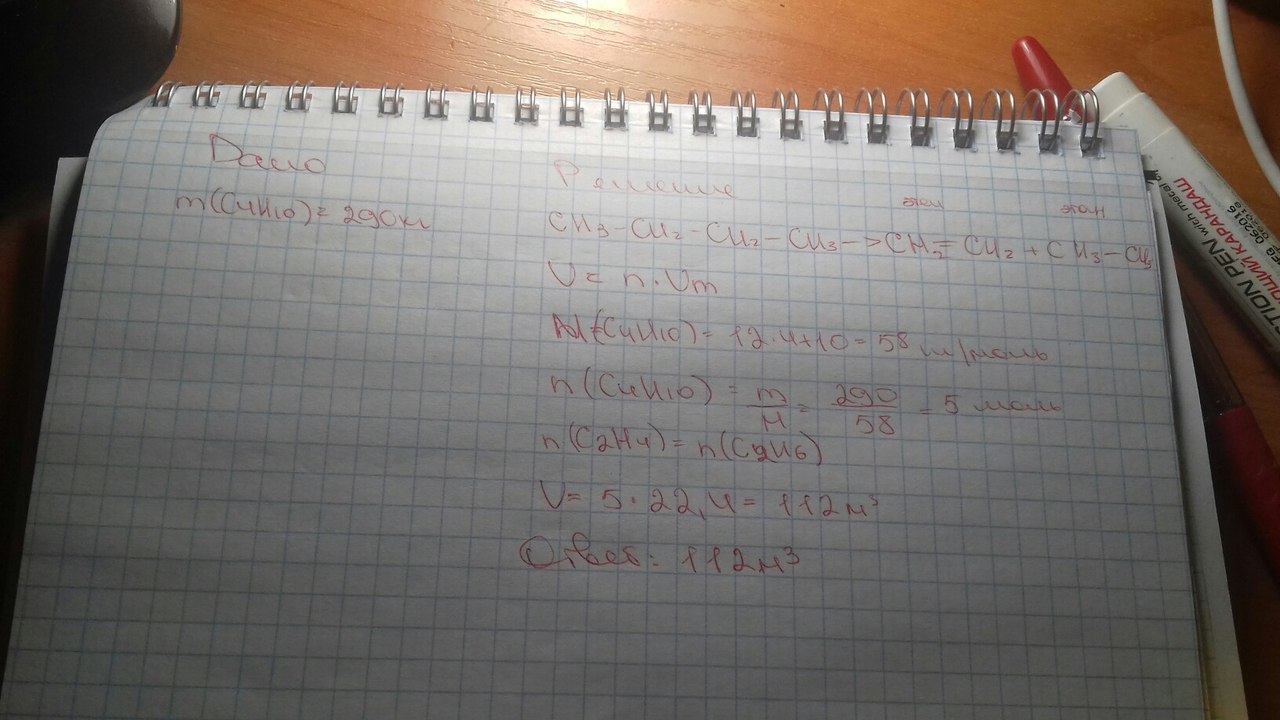 Дано
m(C4H10) = 290 кг
Решение
этен этан
CH3-CH2-CH2-CH3->CH2=CH2+CH3-CH3
V= n·Vm
M(C4H10)= 12·4+10=58 кг/моль
n(C4H10) = m/M = 290/58 = 5 моль
n(C2H4)= n(C2H6)
V= 5·22,4= 112м³
Ответ: 112м³